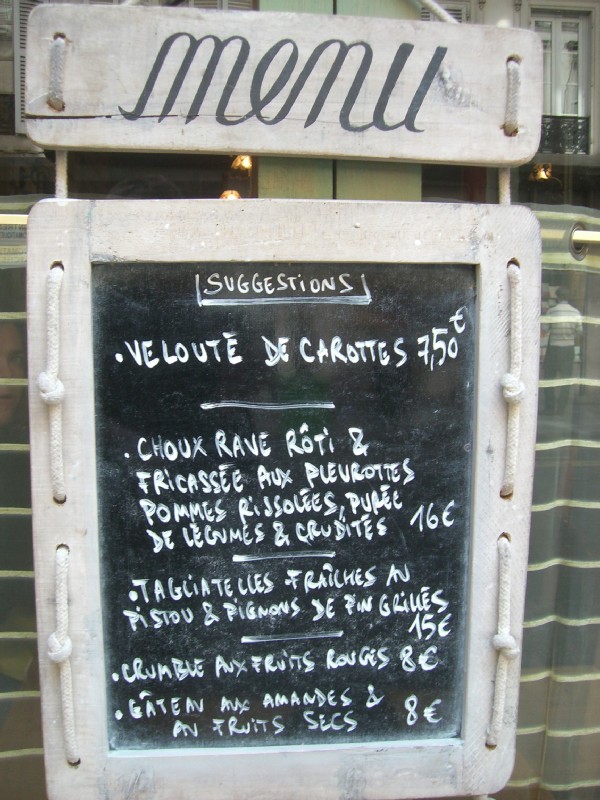 menu
SUGGESTIONS
• VELOUTÉ DE CAROTTES 7,50€
• CHOUX RAVE RÔTI &
FRICASSÉE AUX PLEUROTTES
POMMES RISSOLÉES, PURÉE
DE LÉGUMES & CRUDITÉS 16€
• TAGLIATELLES FRAÎCHES AU
PISTOU & PIGNONS DE PIN GRILLÉS
15€
• CRUMBLE AUX FRUITS ROUGES 8€
• GÂTEAU AUX AMANDES &
AU FRUITS SECS 8€